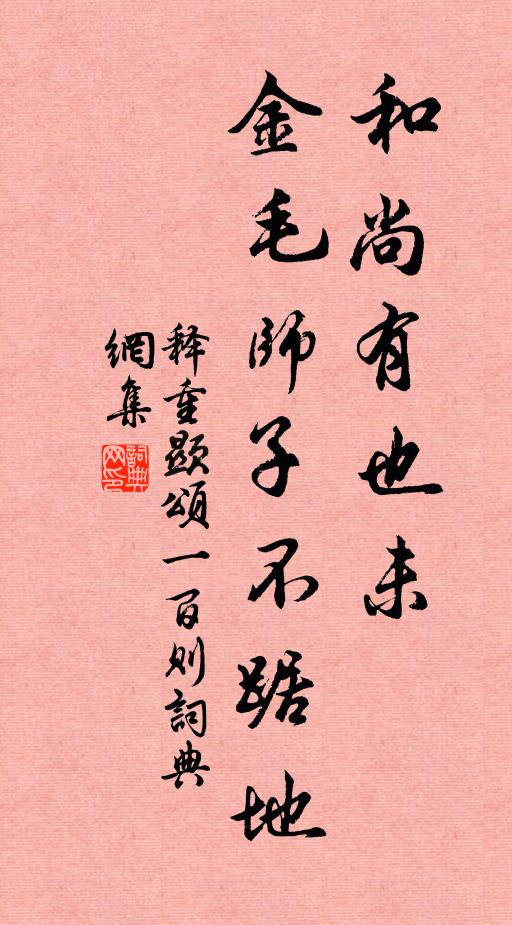 和尚有也未
金毛师子不踞地
释重顯頌一百则詞典
網集
詞典
网印